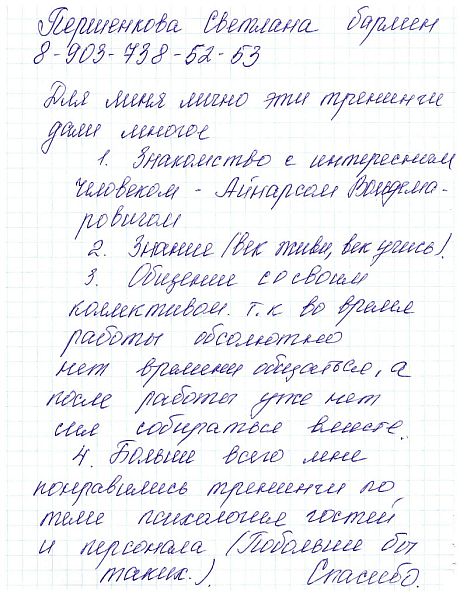 Першенкова Светлана бармен
8-903-738-52-53
Для меня лично эти тренинги
дали многое
1. Знакомство с интересным
человеком - Айнарсом Вольдема-
ровичом
2. Знание (Век живи, век учись).
3. Общение со своим
коллективом. т.к во время
работы абсолютно
нет времени общаться, а
после работы уже нет
сил собираться вместе.
4. Больше всего мне
понравились тренинги по
теме психология гостей
и персонала (Побольше бы
таких.). Спасибо.